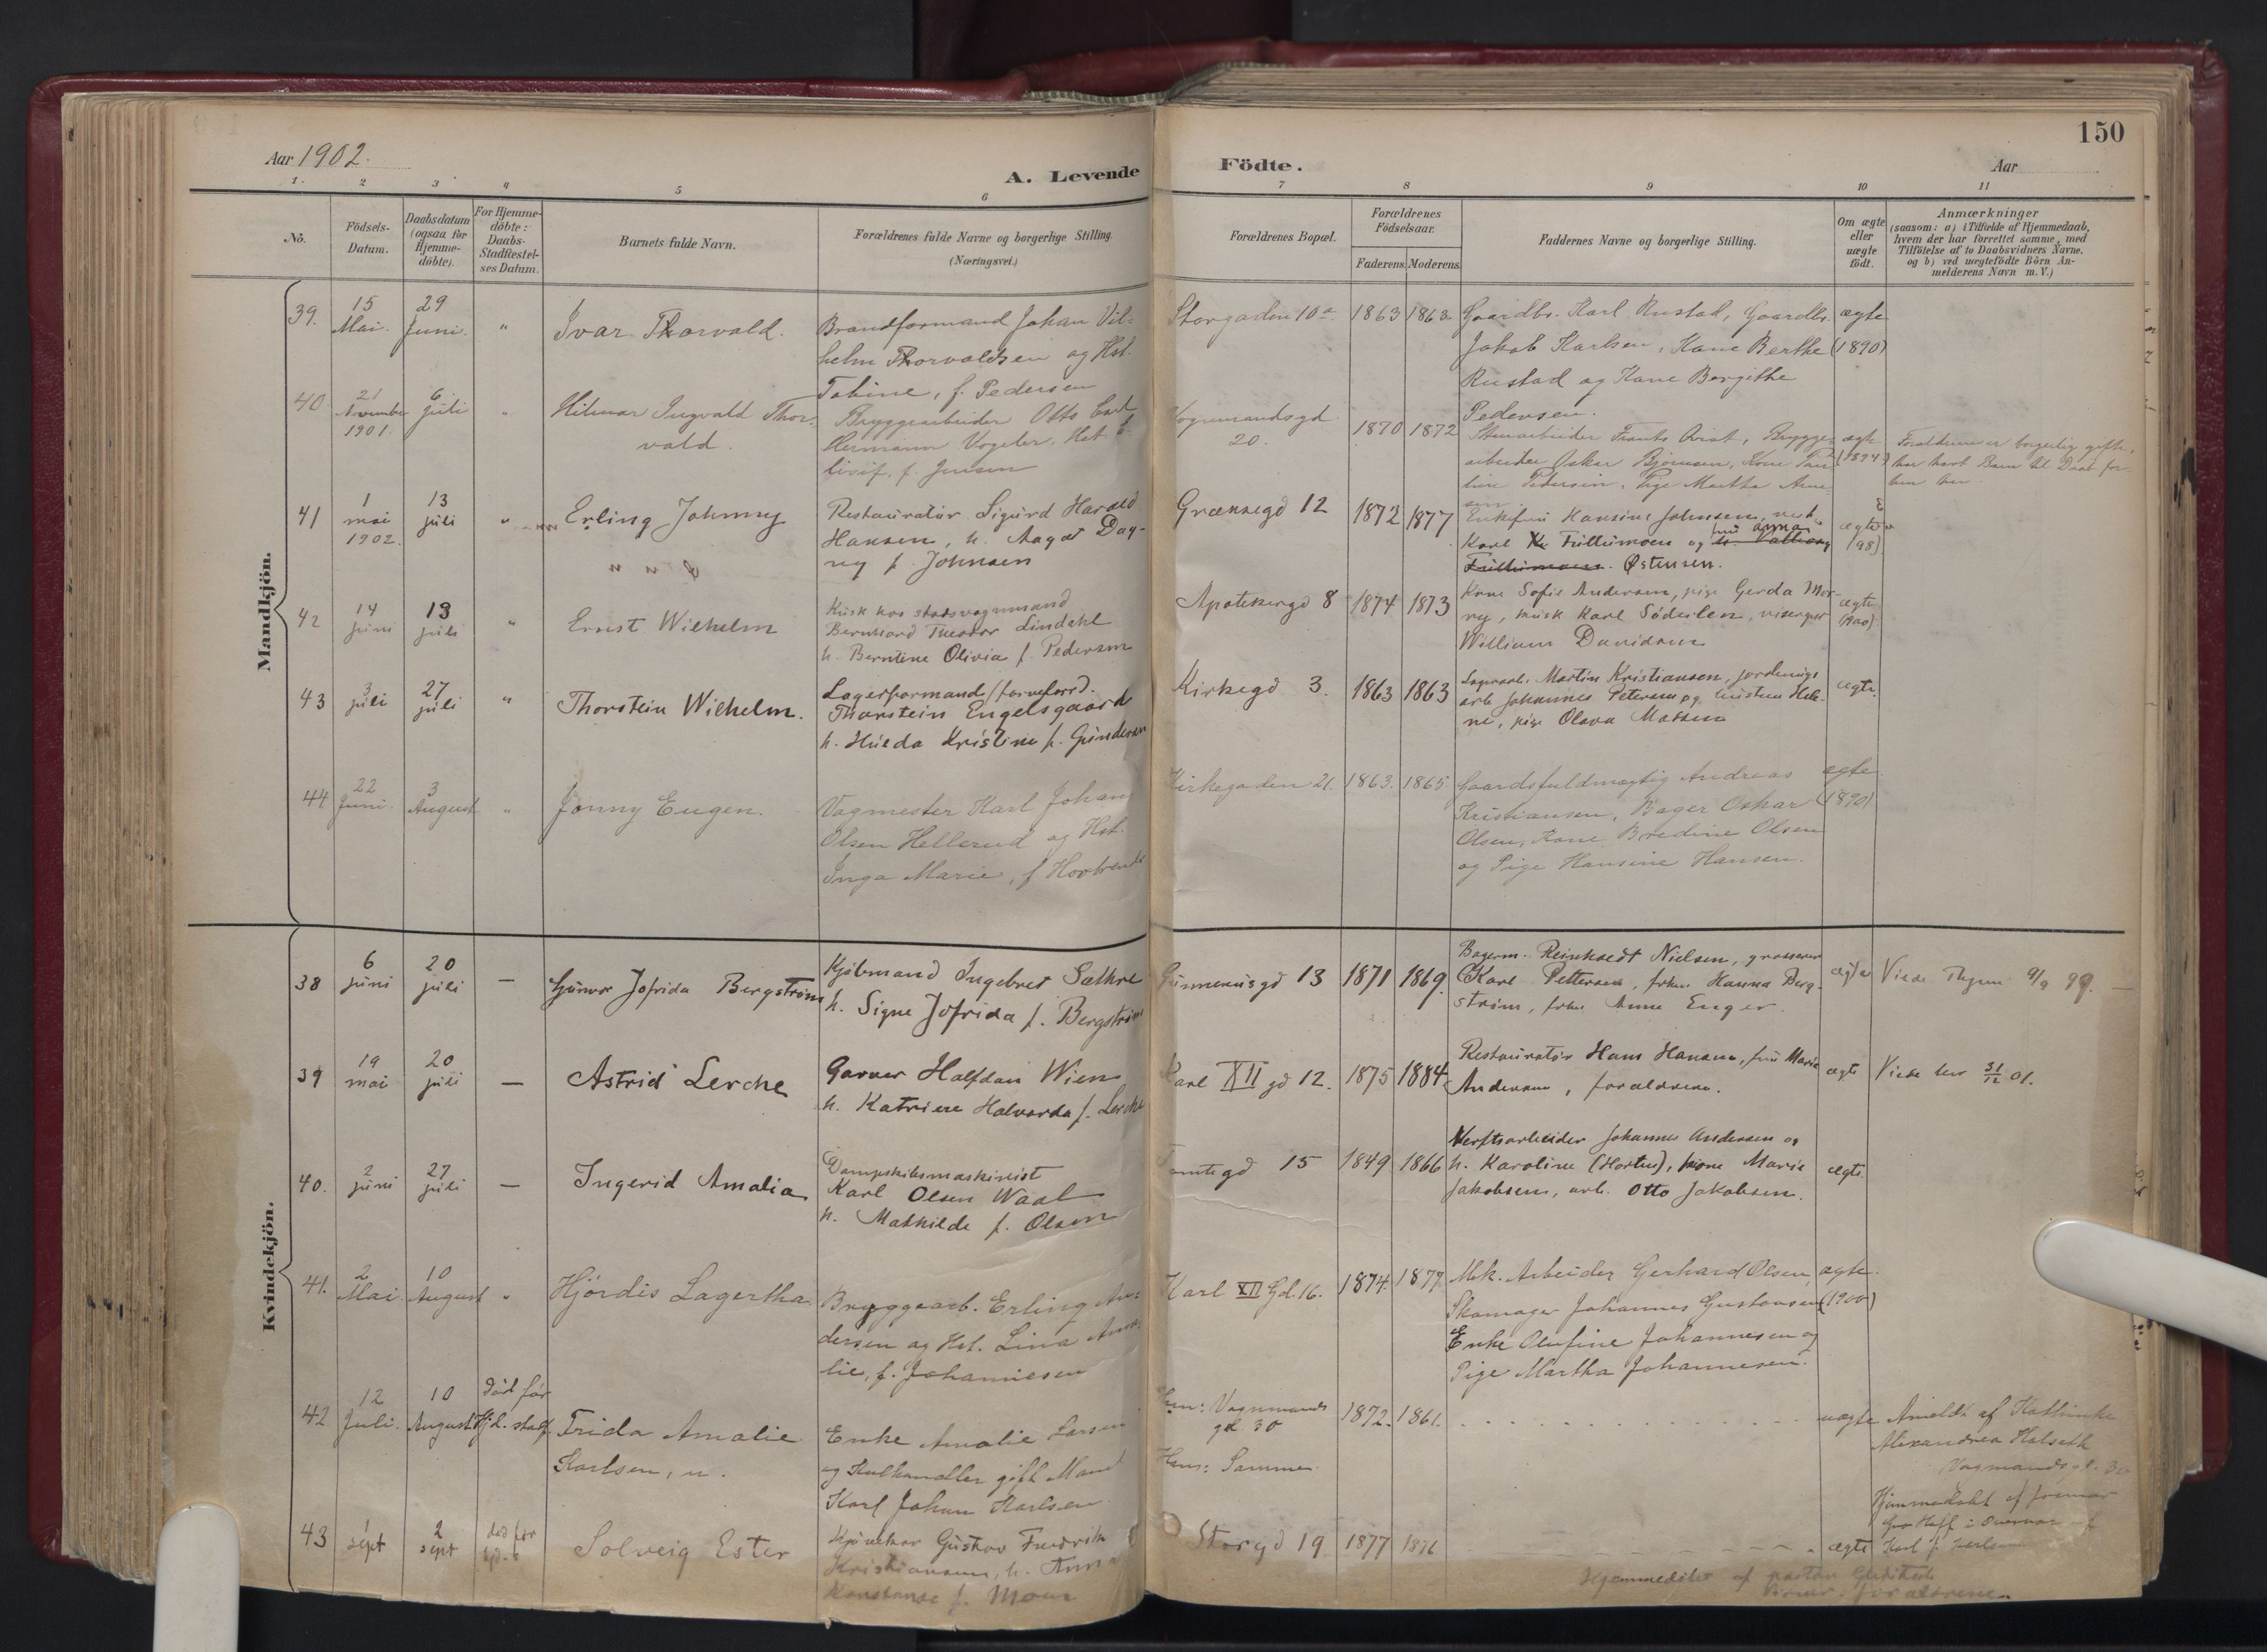 150
Aar 1902.
A. Levende
Födte.
Aar
1.
2
3
4
5
6
7
8
9
10
11
No.
Födsels-
Datum.
Daabsdatum
(ogsaa for
Hjemme-
döbte).
For Hjemme-
döbte:
Daabs-
Stadfæstel-
ses Datum.
Barnets fulde Navn.
Forældrenes fulde Navne og borgerlige Stilling.
(Næringsvei.)
Forældrenes Bopæl.
Forældrenes
Födselsaar.
Faderens
Moderens
Faddernes Navne og borgerlige Stilling.
Om ægte
eller
uægte
födt.
Anmærkninger
(saasom: a) i Tilfælde af Hjemmedaab,
hvem der har forrettet samme, med
Tilföielse af to Daabsvidners Navne.
og b) ved uægtefödte Börn An-
melderens Navn m. V.)
Mandkjön.
39.
15
Mai.
29
Juni.
"
Ivar Thorvald.
Brandformand Johan Vil-
helm Thorvaldsen og Hst.
Tobine, f. Pedersen
Storgaden 10a.
1863
1862
Gaardbr. Karl Rustad, Gaardbr.
Jakob Karlsen, Kone Berthe
Rustad og Kone Bergithe
Pedersen.
ægte
(1890)
40.
21
November
1901.
6
juli
"
Hilmar Ingvald Thor-
vald.
Bryggearbeider Otto Carl
Hermann Vogeler, Hst.
f. Jensen
Vognmandsgd
20.
1870
1872
Stenarbeider Frants Qvist, Brygge-
arbeider Oskar Bjørnsen, Kone
Pedersen, Pige Martha
ægte
(1894)
Forældrene er borgerlig gifte,
har havt Barn til Daab før
41
1
mai
1902.
13
juli
"
Erling Johnny
Restauratør Sigurd Harald
Hansen, h. Aagot Dag-
ny f. Johnsen
Grænsegd 12
1872
1877
Enkefru Hansine Johnsen,
Karl Fullumoen og fru Anna
Østensen.
ægte
(98)
42
14
juni
13
juli
"
Ernst Wilhelm
Kusk hos stadsvognmand
Bernhard Theodor Lindahl
h. Berntine Olivia f. Pedersen
Apotekergd 8
1874
1873
Kone Sofie Andersen, pige Gerda
kusk Karl Söderlen, visergut
William Davidsen
ægte
(1900)
43
3
juli
27
juli
"
Thorstein Wilhelm.
Lagerformand
Thorstein Engelsgaard
h. Hulda Kristine f. Gundersen
Kirkegd 3.
1863
1863
Martin Kristiansen,
arb Johannes Petersen og hustru Hele-
ne, pige Olava Madsen
ægte.
44
22
Juni.
3
August
"
Jonny Eugen.
Vagmester Karl Johan
Olsen Hellerud og Hst.
Inga Marie, f
Kirkegaden 21.
1863.
1865
Gaardsfuldmægtig Andreas
Kristiansen, Bager Oskar
Olsen, Kone Bredine Olsen
og Pige Hansine Hansen.
ægte
(1890)
Kvindekjön.
38
6
juni
20
juli
—
Gunvor Jofrida Bergstrøm
Kjøbmand Ingebret Sæthre
h. Signe Jofrida f. Bergstrøm
Gunnerusgd 13
1871
1869.
Bagerm. Reinhardt Nielsen, grosserer
Karl Pettersen, frkn. Hanna Berg-
strøm, frkn Anna Enger.
ægte
Viede 9/9 99.
39
19
mai
20
juli
—
Astrid Lerche
Garver Halfdan Wien
h. Katrine Halvarda f. Lerche
Karl XII gd 12.
1875
1884.
Restauratør Hans Hansen, fru Marie
Andersen, forældrene.
ægte
Viede her 31/12 01.
40.
2
juni
27
juli
—
Ingerid Amalia
Dampskibsmaskinist
Karl Olsen Waal
h. Mathilde f. Olsen
Tomtegd 15
1849
1866
Verftsarbeider Johannes Andersen og
h. Karoline (Horten), kone Marie
Jakobsen, arb. Otto Jakobsen.
ægte.
41.
2
Mai.
10
August
"
Hjördis Lagertha
Bryggearb. Erling An-
dersen og Hst. Lina Ama-
lie, f. Johannesen
Karl XII Gd. 16.
1874.
1877.
Mek. Arbeider Gerhard Olsen,
Skomager Johannes Gustavsen
Enke Olufine Johannesen og
Pige Martha Johannesen.
ægte.
(1900)
42
12
Juli.
10
August
död før
Hjd. stadf
Frida Amalie
Karlsen, u.
Enke Amalie Larsen
og Kulhandler gift Mand
Karl Johan Karlsen
Hun: Vognmands
gd. 30
Hans: Samme
1872.
1861.
uægte
Anmeldt af Kathinke
Alexandrea Halseth
Vognmandsgd. 30
Hjemmedøbt af
43
1
sept
2
sept
död før
Solveig Ester
Gustav Fredrik
Kristiansen, h. Anna
Konstanse f. Moen
Storgd 19
1877
1876
ægte
Hjemmedöbt af pastor
forældrene.